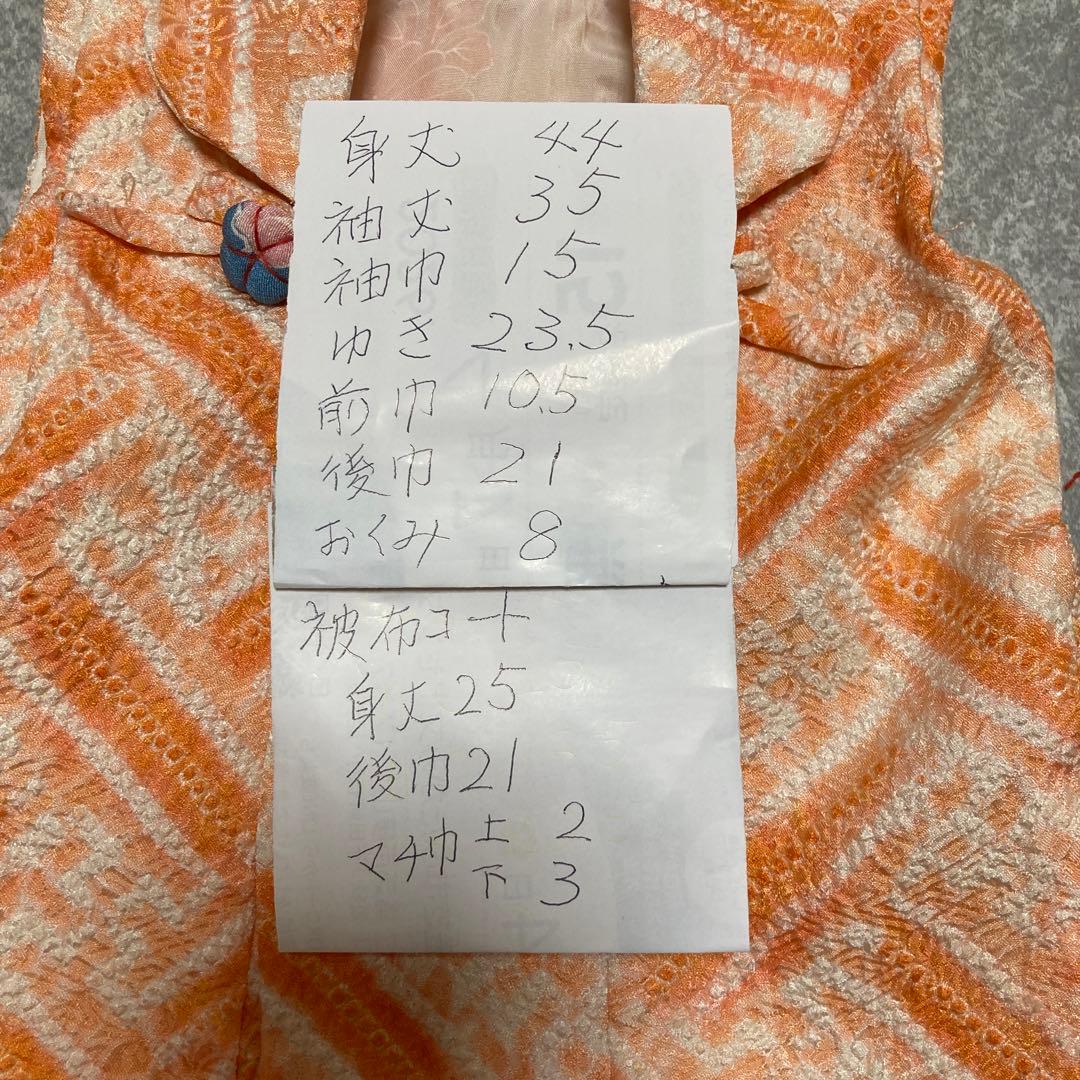 身丈 44
袖丈 35
袖巾 15
ゆき 23.5
前巾 10.5
後巾 21
おくみ 8
被布コート
身丈 25
後巾 21
マチ巾 上 2
下 3